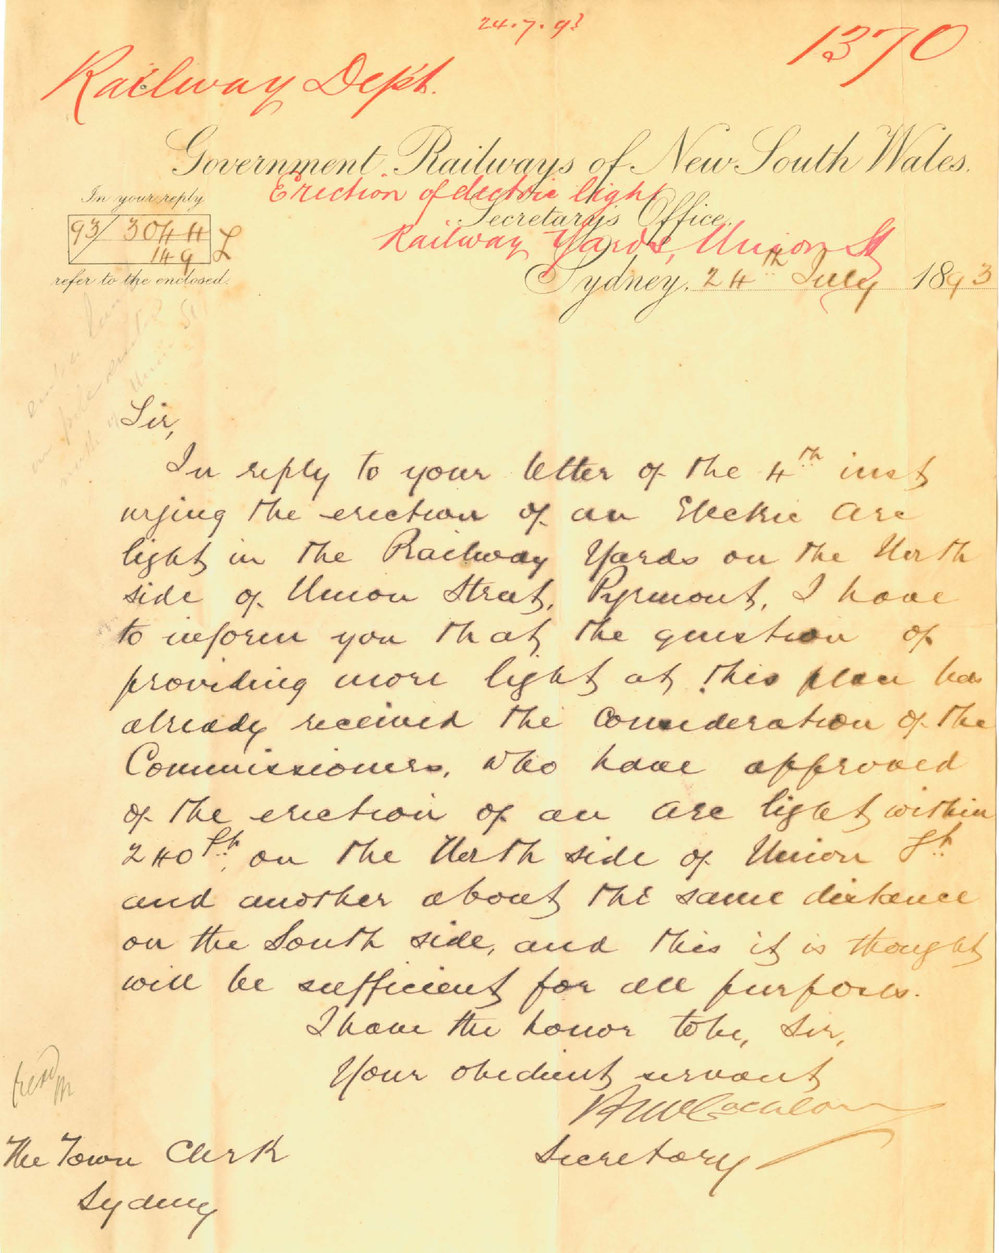 24.7.93
1370
Railway Dept.
Government Railways of New South Wales.
Erection of electric light
In your reply
Secretary's Office,
93/3044
149 L
Railway Yards, Union St
refer to the enclosed.
Sydney, 24th July 1893
Sir,
In reply to your letter of the 4th inst
urging the erection of an Electric Arc
light in the Railway Yards on the North
side of Union Street, Pyrmont, I have
to inform you that the question of
providing more light at this place has
already received the consideration of the
Commissioners, who have approved
of the erection of an arc light within
240 ft. on the North side of Union St
and another about the same distance
on the South side, and this it is thought
will be sufficient for all purposes.
I have the honor to be, Sir,
Your obedient servant
H McLachlan
Secretary
The Town Clerk
Sydney